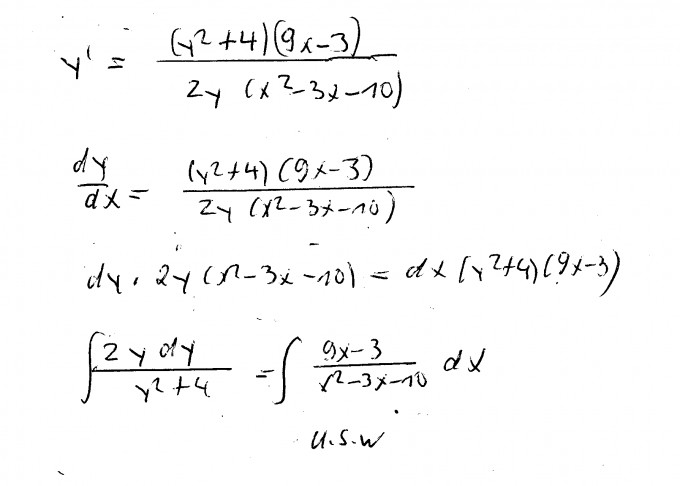 y' = (y²+4)(9x-3) / 2y (x²-3x-10)
dy/dx = (y²+4)(9x-3) / 2y (x²-3x-10)
dy · 2y (x²-3x-10) = dx (y²+4)(9x-3)
∫ 2y dy / y²+4 = ∫ 9x-3 / x²-3x-10 dx
u.s.w